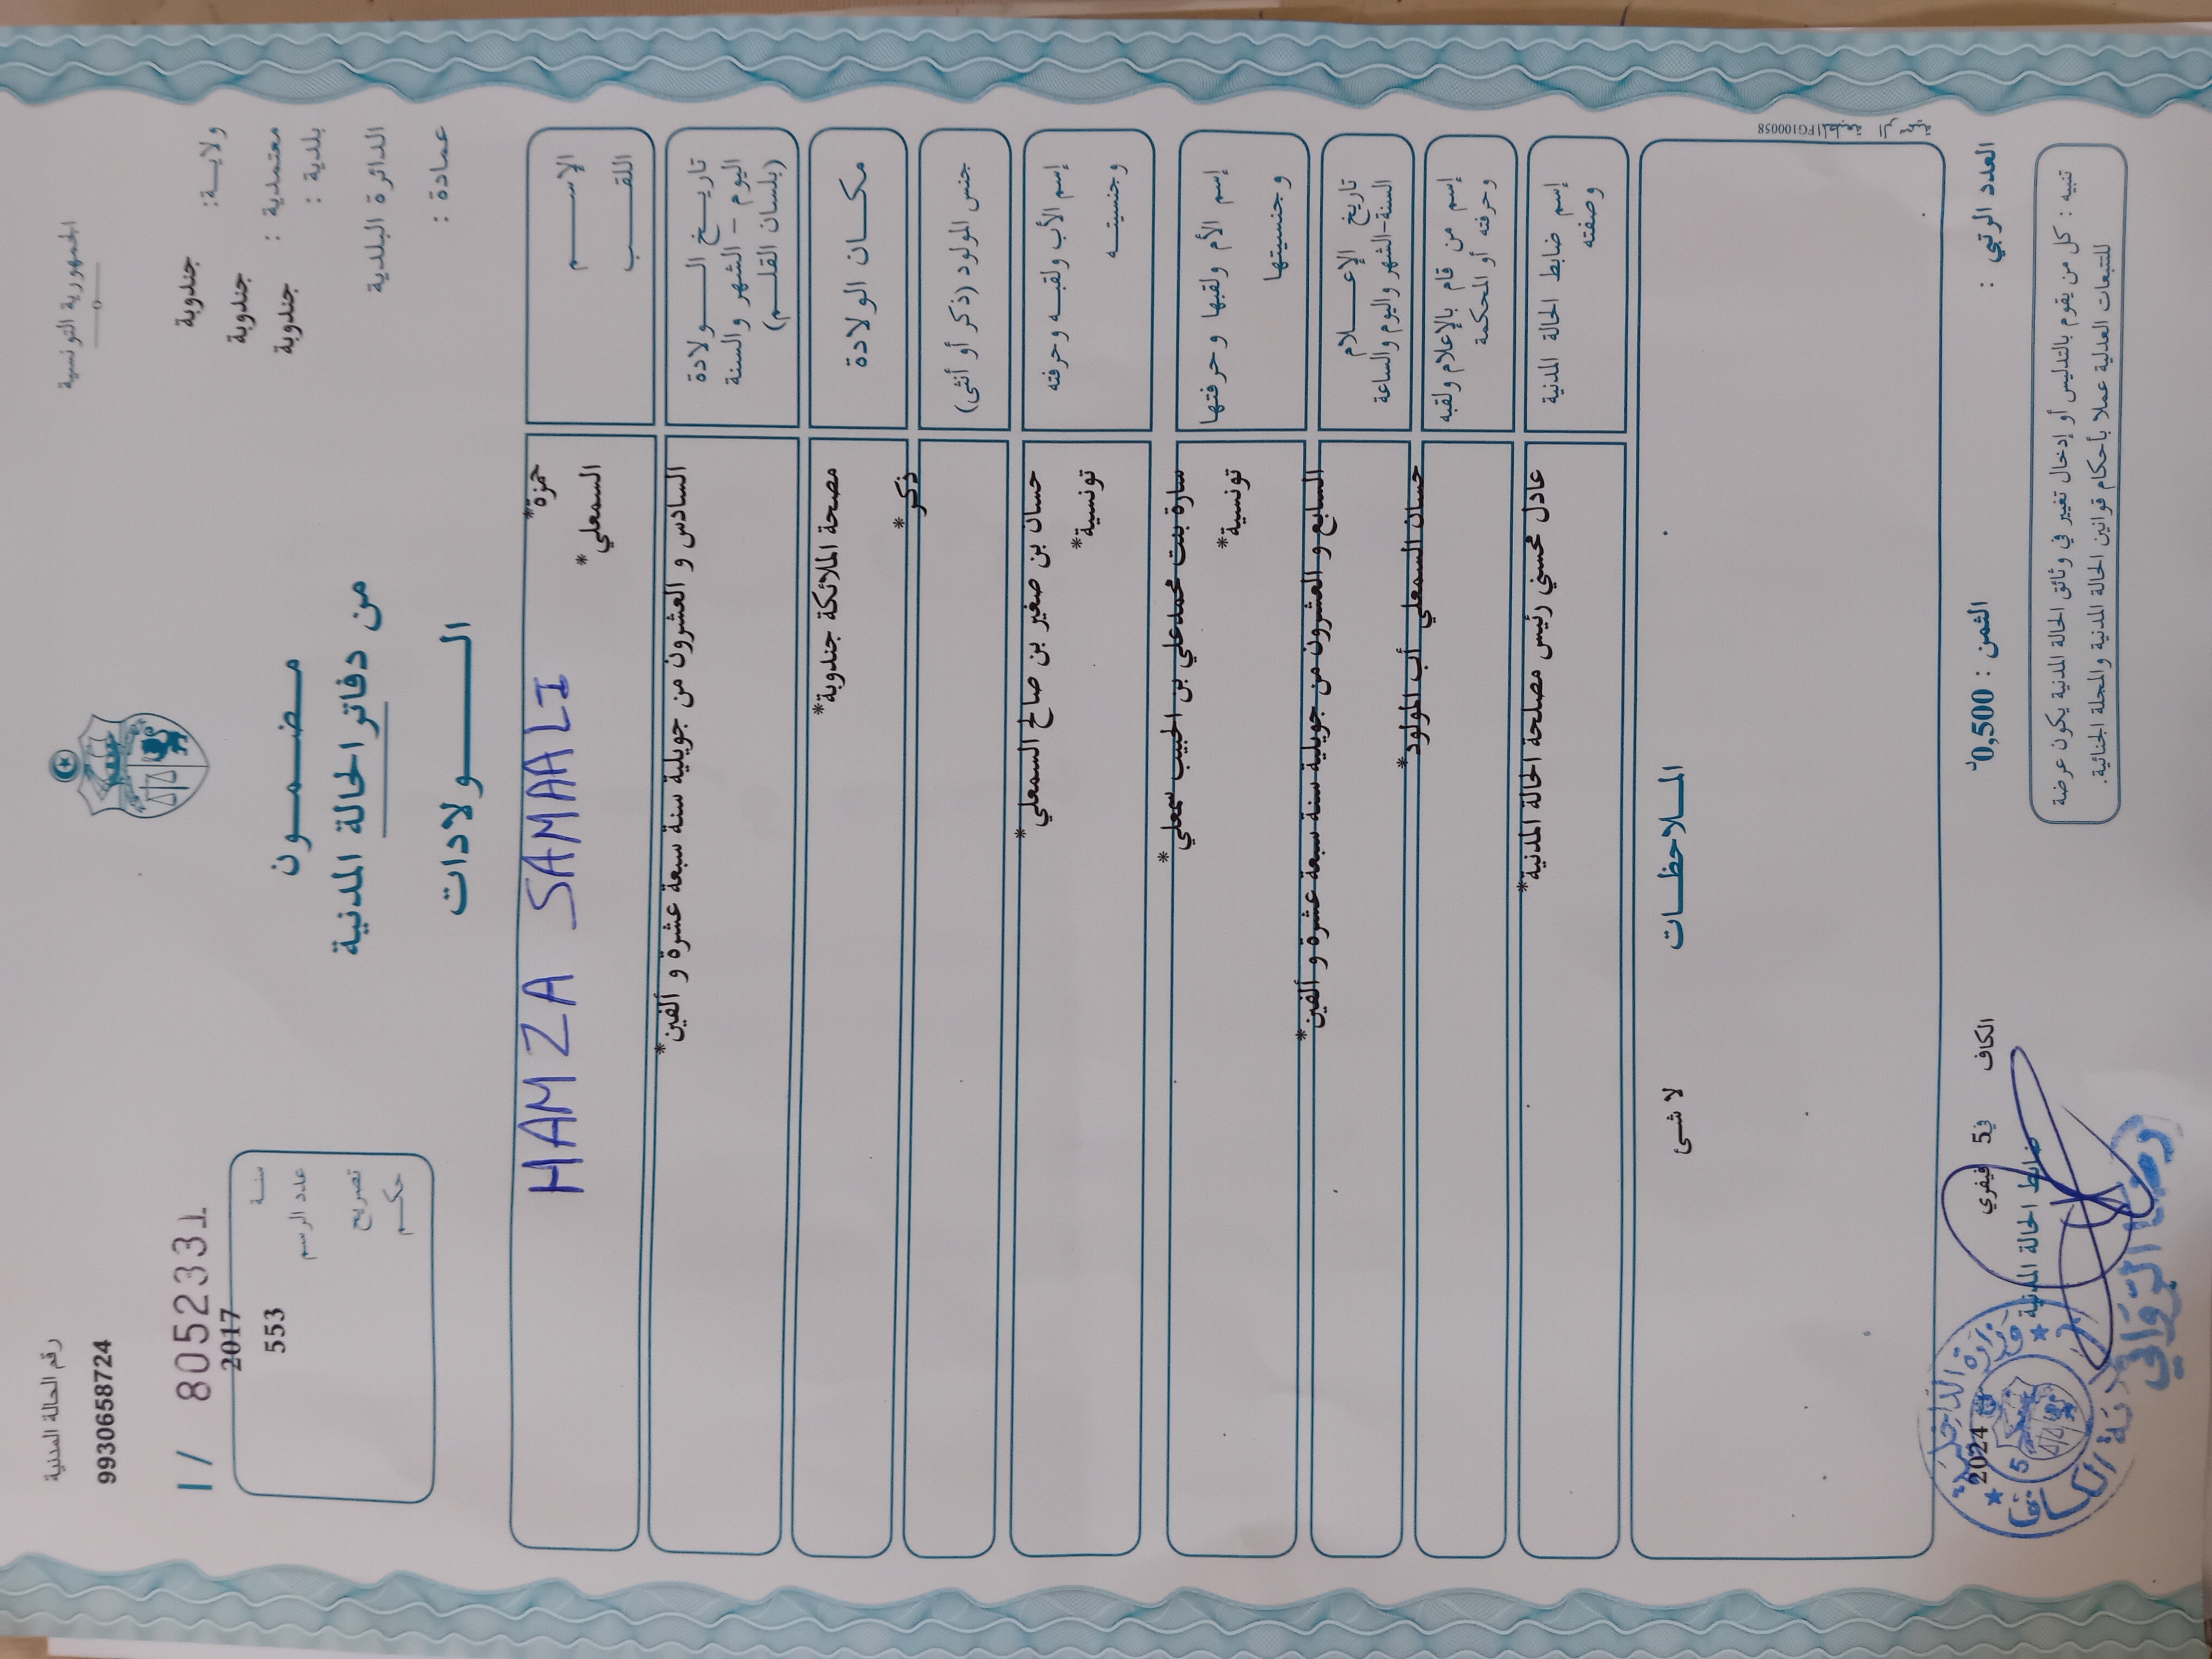 الجمهورية التونسية
رقم الحالة المدنية
9930658724
ولاية: جندوبة
معتمدية : جندوبة
بلدية : جندوبة
الدائرة البلدية
عمادة :
مضمون
من دفاتر الحالة المدنية
الولادات
I / 8052331
سنة 2017
عدد الرسم 553
تصريح
حكم
الإسم حمزة*
اللقب السمعلي*
HAMZA SAMAALI
تاريخ الولادة
اليوم - الشهر والسنة
(بلسان القلم)
السادس و العشرون من جويلية سنة سبعة عشرة و ألفين*
مكان الولادة
مصحة الملائكة جندوبة*
جنس المولود (ذكر أو أنثى)
ذكر*
إسم الأب ولقبه وحرفته
وجنسيته
حسان بن صغير بن صالح السمعلي*
تونسية*
إسم الأم ولقبها وحرفتها
وجنسيتها
سارة بنت محمدعلي بن الحبيب سمعلي*
تونسية*
تاريخ الإعلام
السنة-الشهر واليوم والساعة
السابع و العشرون من جويلية سنة سبعة عشرة و ألفين*
إسم من قام بالإعلام ولقبه
وحرفته أو المحكمة
حسان السمعلي أب المولود*
إسم ضابط الحالة المدنية
وصفته
عادل محسني رئيس مصلحة الحالة المدنية*
الملاحظات
لا شئ
المطبعة الرسمية IFG100058
العدد الرتبي :
الثمن : 0,500د
الكاف في 5 فيفري 2024
ضابط الحالة المدنية
تنبيه : كل من يقوم بالتدليس أو إدخال تغيير في وثائق الحالة المدنية يكون عرضة
للتتبعات العدلية عملا بأحكام قوانين الحالة المدنية والمجلة الجنائية.
وزارة الداخلية
الكاف
5